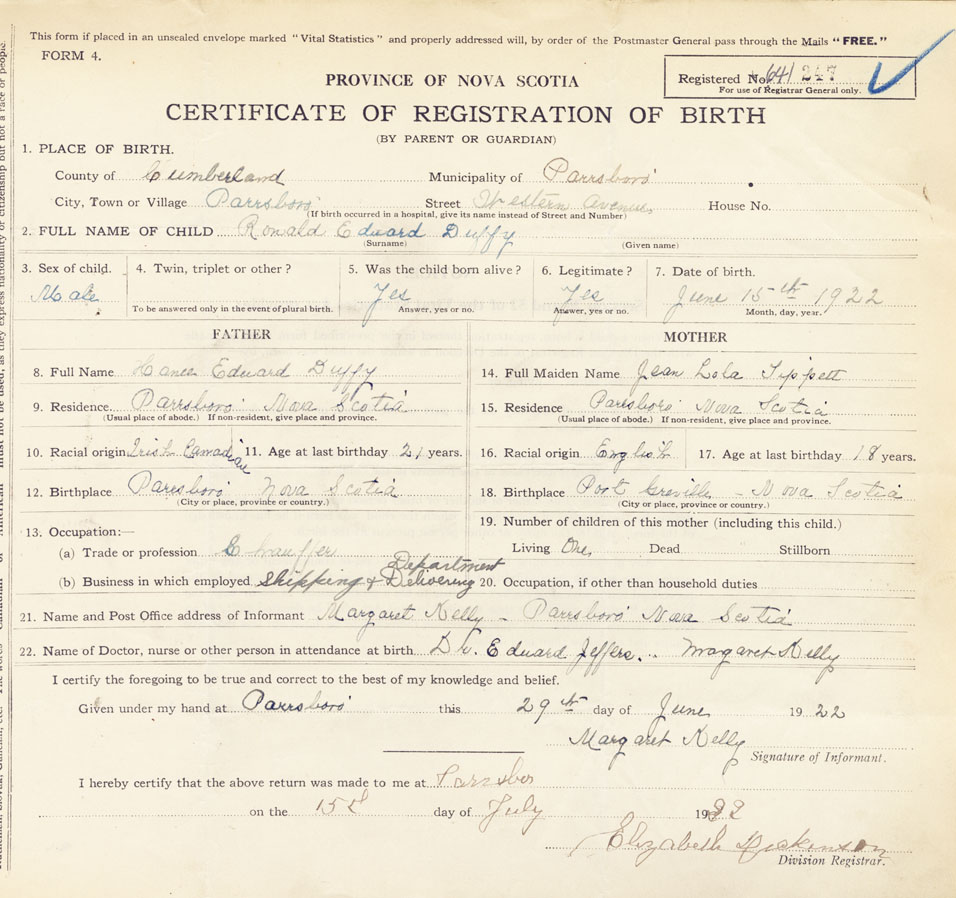 This form if placed in an unsealed envelope marked "Vital Statistics" and properly addressed will, by order of the Postmaster General pass through the Mails "FREE."
FORM 4.
PROVINCE OF NOVA SCOTIA
Registered No. 641 247
For use of Registrar General only.
CERTIFICATE OF REGISTRATION OF BIRTH
(BY PARENT OR GUARDIAN)
1. PLACE OF BIRTH.
County of Cumberland Municipality of Parrsboro'
City, Town or Village Parrsboro' Street Western Avenue House No.
(If birth occurred in a hospital, give its name instead of Street and Number)
2. FULL NAME OF CHILD Ronald Edward Duffy
(Surname) (Given name)
3. Sex of child. 4. Twin, triplet or other? 5. Was the child born alive? 6. Legitimate? 7. Date of birth.
Male Yes Yes June 15th 1922
To be answered only in the event of plural birth. Answer, yes or no. Answer, yes or no. Month, day, year.
FATHER MOTHER
8. Full Name Edward Duffy 14. Full Maiden Name Jean Lola Tippett
9. Residence Parrsboro' Nova Scotia 15. Residence Parrsboro Nova Scotia
(Usual place of abode.) If non-resident, give place and province. (Usual place of abode.) If non-resident, give place and province.
10. Racial origin Irish Canadian 11. Age at last birthday 21 years. 16. Racial origin English 17. Age at last birthday 18 years.
12. Birthplace Parrsboro' Nova Scotia 18. Birthplace Port Greville - Nova Scotia
(City or place, province or country.) (City or place, province or country.)
13. Occupation:— 19. Number of children of this mother (including this child.)
(a) Trade or profession Chauffer Living One Dead Stillborn
(b) Business in which employed Shipping & Delivering Department 20. Occupation, if other than household duties
21. Name and Post Office address of Informant Margaret Kelly - Parrsboro' Nova Scotia
22. Name of Doctor, nurse or other person in attendance at birth Dr. Edward Jeffers.. Margaret Kelly
I certify the foregoing to be true and correct to the best of my knowledge and belief.
Given under my hand at Parrsboro' this 29th day of June 1922
Margaret Kelly
Signature of Informant.
I hereby certify that the above return was made to me at Parrsboro
on the day of July 1922
Elizabeth Dickinson
Division Registrar.